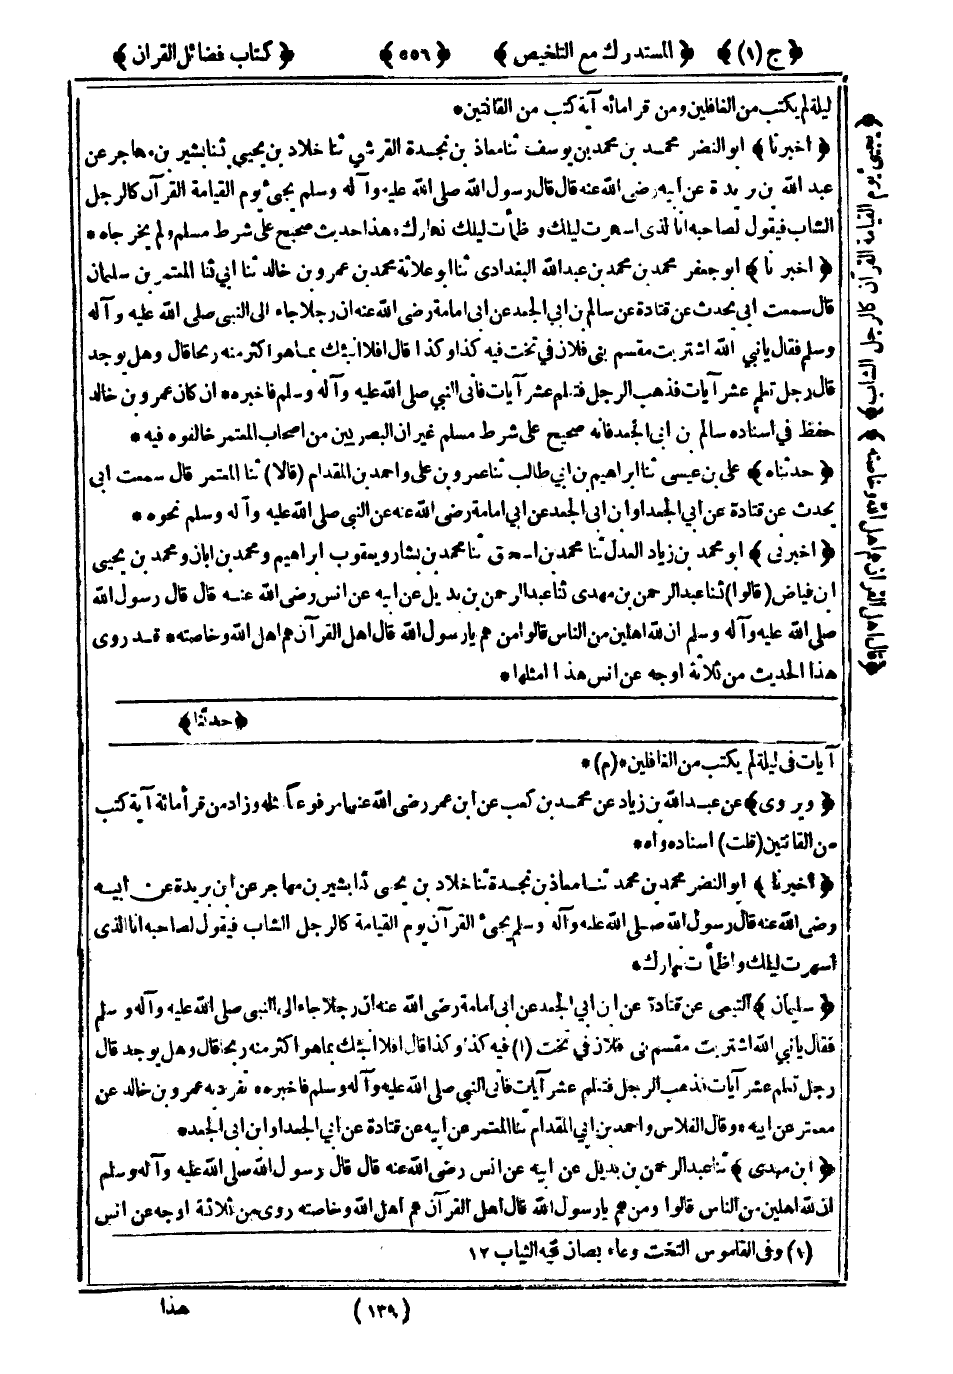 ﴿ ج (١) ﴾ ﴿ المستدرك مع التلخيص ﴾ ﴿ ٥٥٦ ﴾ ﴿ كتاب فضائل القرآن ﴾
ليلة لم يكتب من الغافلين ومن قرأ مائة آية كتب من القانتين *
﴿ اخبرنا ﴾ ابو النضر محمد بن محمد بن يوسف ثنا معاذ بن نجدة القرشي ثنا خلاد بن يحيى ثنا بشير بن مهاجر عن
عبد الله بن بريدة عن ابيه رضى الله عنه قال قال رسول الله صلى الله عليه وآله وسلم يجئ يوم القيامة القرآن كالرجل
الشاب فيقول لصاحبه انا الذى اسهرت ليلك واظمأت نهارك * هذا حديث صحيح على شرط مسلم ولم يخرجاه *
﴿ اخبرنا ﴾ ابو جعفر محمد بن محمد بن عبد الله البغدادى ثنا ابو علاثة محمد بن عمرو بن خالد ثنا ابي ثنا المعتمر بن سليمان
قال سمعت ابى يحدث عن قتادة عن سالم بن ابي الجعد عن ابى امامة رضى الله عنه ان رجلا جاء الى النبى صلى الله عليه وآله
وسلم فقال يا نبي الله اشتريت مقسم بنى فلان في تخت فيه كذا وكذا قال افلا انبئك بما هو اكثر منه ربحا قال وهل يوجد
قال رجل تعلم عشر آيات فذهب الرجل فتعلم عشر آيات فأتى النبي صلى الله عليه وآله وسلم فاخبره * ان كان عمرو بن خالد
حفظ في اسناده سالم بن ابى الجعد فانه صحيح على شرط مسلم غير ان البصريين من اصحاب المعتمر خالفوه فيه *
﴿ حدثناه ﴾ على بن عيسى ثنا ابراهيم بن ابي طالب ثنا عمرو بن على واحمد بن المقدام (قالا) ثنا المعتمر قال سمعت ابى
يحدث عن قتادة عن ابي الجعد او ابن ابى الجعد عن ابي امامة رضى الله عنه عن النبى صلى الله عليه وآله وسلم نحوه *
﴿ اخبرنى ﴾ ابو محمد بن زياد العدل ثنا محمد بن اسحق ثنا محمد بن بشار ويعقوب بن ابراهيم ومحمد بن ابان ومحمد بن يحيى
ابن فياض (قالوا) ثنا عبد الرحمن بن مهدى ثنا عبد الرحمن بن بديل عن ابيه عن انس رضى الله عنه قال قال رسول الله
صلى الله عليه وآله وسلم ان لله اهلين من الناس قالوا من هم يا رسول الله قال اهل القرآن هم اهل الله وخاصته * قد روى
هذا الحديث من ثلاثة اوجه عن انس هذا امثلها *
﴿ حدثنا ﴾
آيات فى ليلة لم يكتب من الغافلين * (م) *
﴿ ويروى ﴾ عن عبد الله بن زياد عن محمد بن كعب عن ابن عمر رضى الله عنهما مرفوعاً مثله وزاد من قرأ مائة آية كتب
من القانتين (قلت) اسناده واه *
﴿ اخبرنا ﴾ ابو النضر محمد بن محمد ثنا معاذ بن نجدة ثنا خلاد بن يحيى ثنا بشير بن مهاجر عن ابن بريدة عن ابيه
رضى الله عنه قال رسول الله صلى الله عليه وآله وسلم يجئ القرآن يوم القيامة كالرجل الشاب فيقول لصاحبه انا الذى
اسهرت ليلك واظمأت نهارك *
﴿ سليمان ﴾ التيمى عن قتادة عن ابن ابي الجعد عن ابى امامة رضى الله عنه ان رجلا جاء الى النبى صلى الله عليه وآله وسلم
فقال يا نبي الله اشتريت مقسم بنى فلان في تخت (١) فيه كذا وكذا قال افلا انبئك بما هو اكثر منه ربحا قال وهل يوجد قال
رجل تعلم عشر آيات فذهب الرجل فتعلم عشر آيات فأتى النبي صلى الله عليه وآله وسلم فاخبره * تفرد به عمرو بن خالد عن
معتمر عن ابيه * وقال الفلاس واحمد بن ابي المقدام ثنا المعتمر عن ابيه عن قتادة عن ابي الجعد او ابن ابى الجعد *
﴿ ابن مهدى ﴾ ثنا عبد الرحمن بن بديل عن ابيه عن انس رضى الله عنه قال قال رسول الله صلى الله عليه وآله وسلم
ان لله اهلين من الناس قالوا ومن هم يا رسول الله قال اهل القرآن هم اهل الله وخاصته روى من ثلاثة اوجه عن انس
(١) وفى القاموس التخت وعاء يصان فيه الثياب ١٢
(١٣٩) هذا
﴿ يجيئ يوم القيامة القرآن كالرجل الشاب ﴾ ﴿ قال اهل القرآن هم اهل الله وخاصته ﴾